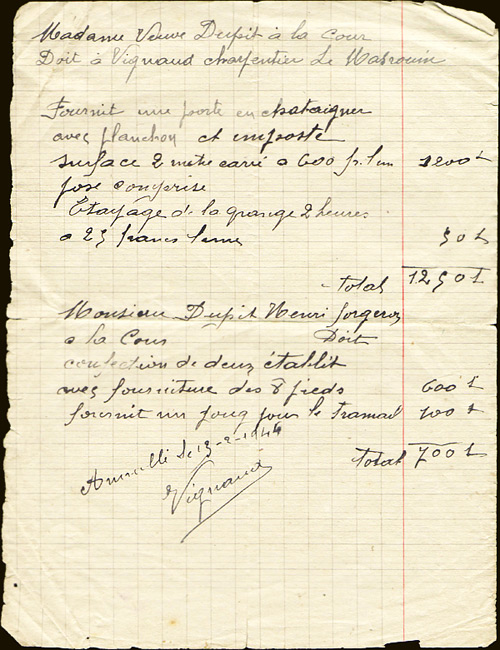 Madame Veuve Dupit à la Cour
Doit à Vignaud charpentier Le Masrouin
Fournit une porte en chataigner
avec planchon et imposte
surface 2 mètre carré a 600 f. l'un 1200 f
pose comprise
Etayage de la grange 2 heures
a 25 francs l'une 50 f
total 1250 f
Monsieur Dupit Henri forgeron
a la Cour Doit
confection de deux établit
avec fourniture des 8 pieds 600 f
fournit un joug pour le tramail 100 f
total 700 f
le 13-2-1944
Vignaud